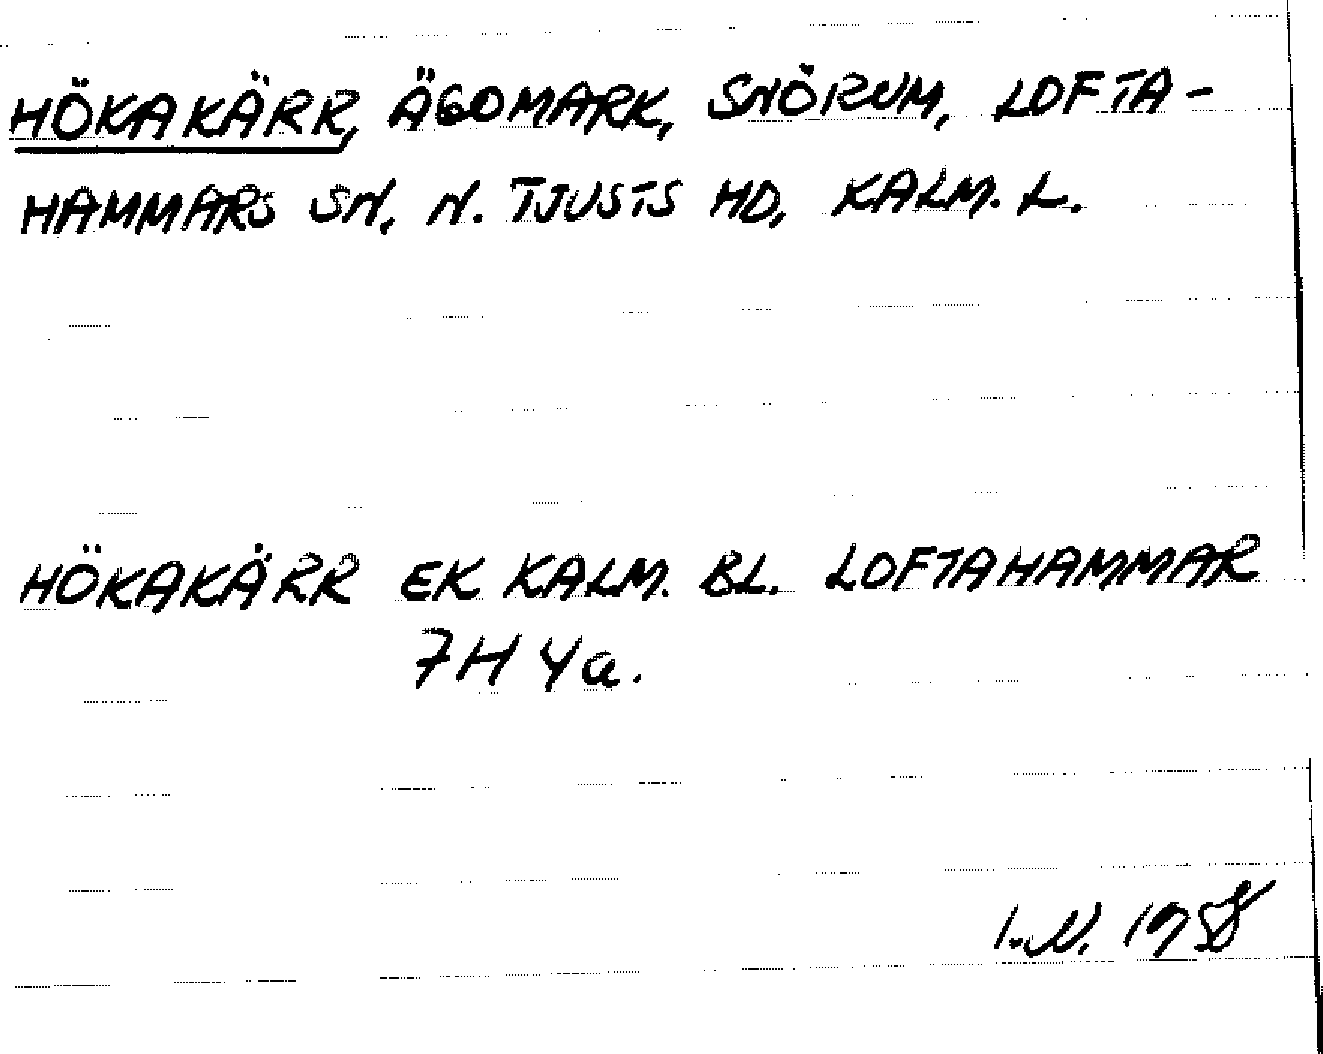 HÖKAKÄRR, ÄGOMARK, SNÖRUM, LOFTA-
HAMMARS SN, N. TJUSTS HD, KALM. L.
HÖKAKÄRR EK KALM. BL. LOFTAHAMMAR
7H 4a.
I.N.